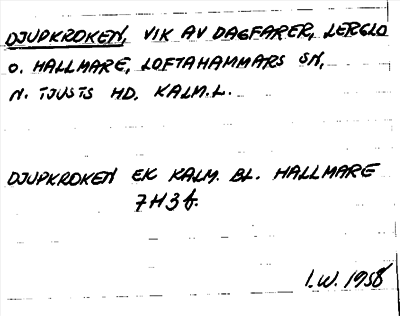 DJUPKROKEN, VIK AV DAGFARER, LERGLO
O. HALLMARE, LOFTAHAMMARS SN,
N. TJUSTS HD, KALM.L.
DJUPKROKEN EK KALM. BL. HALLMARE
7H3f.
I.W. 1958